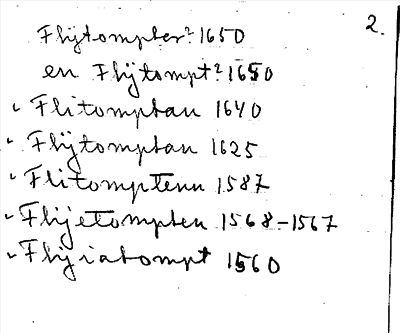 2.
Flÿtompter? 1650
en Flÿtompt? 1650
Flitomptan 1640
Flÿtomptan 1625
Flitomptenn 1587
Flÿetompten 1568-1567
Flÿiatompt 1560